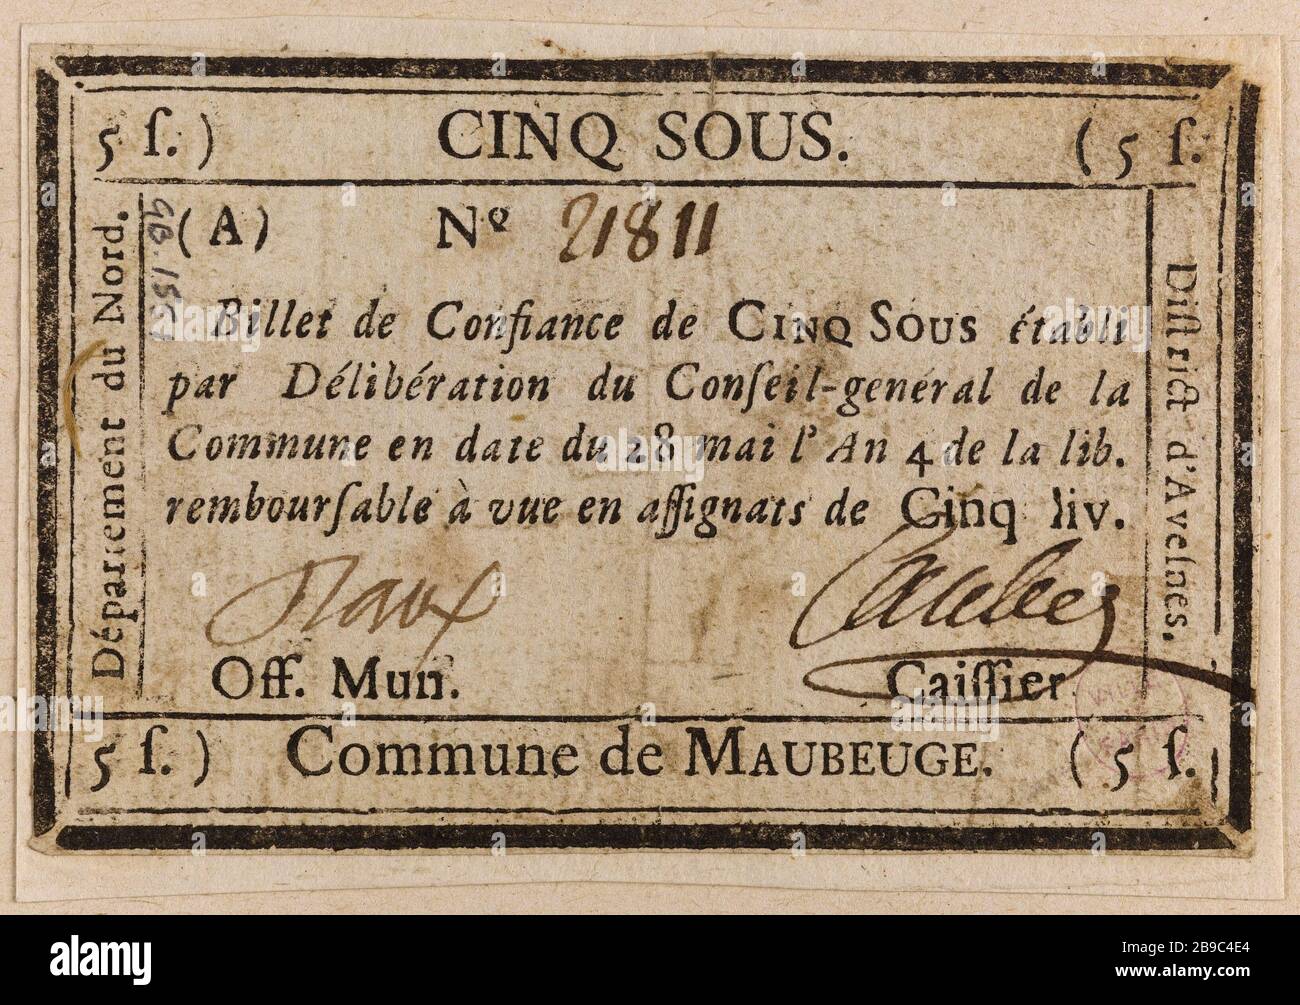 5 ſ. ) CINQ SOUS. ( 5 ſ.
Département du Nord.
GB. 1551
( A ) Nº 21811
Billet de Confiance de CINQ SOUS établi
par Délibération du Conſeil-general de la
Commune en date du 28 mai l'An 4 de la lib.
rembourſable à vue en aſſignats de Cinq liv.
Off. Mun. Caiſſier
Diſtrict d'Aveſnes.
5 ſ. ) Commune de MAUBEUGE. ( 5 ſ.
alamy
Image ID: 2B9C4E4
www.alamy.com